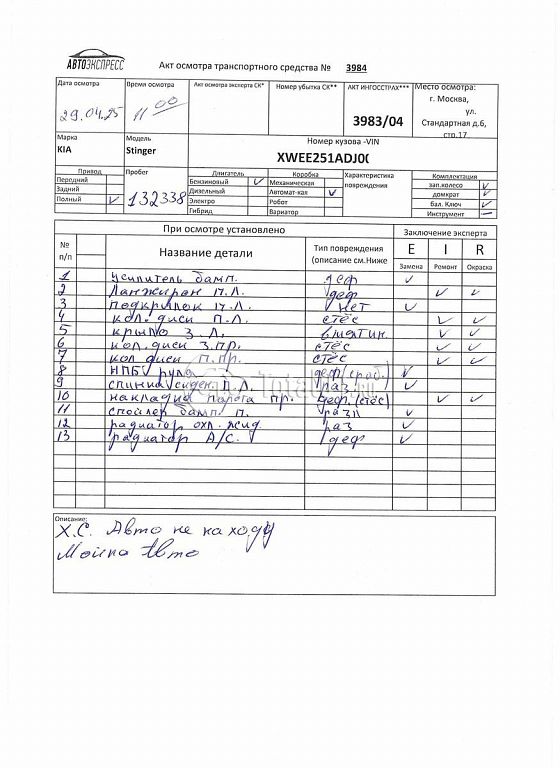 АВТОЭКСПРЕСС
Акт осмотра транспортного средства № 3984
Дата осмотра Время осмотра Акт осмотра эксперта СК* Номер убытка СК** АКТ ИНГОССТРАХ*** Место осмотра:
г. Москва,
29.04.25 11 00 ул.
3983/04 Стандартная д.6,
стр.17
Марка Модель Номер кузова -VIN
KIA Stinger XWEE251ADJ0(
Привод Пробег Двигатель Коробка Характеристика повреждения Комплектация
Передний Бензиновый ✓ Механическая зап.колесо ✓
Задний 132338 Дизельный Автомат-кая ✓ домкрат ✓
Полный ✓ Электро Робот бал. Ключ ✓
Гибрид Вариатор Инструмент —
При осмотре установлено Заключение эксперта
№ п/п Название детали Тип повреждения (описание см.Ниже E I R
Замена Ремонт Окраска
1 усилитель бамп. деф ✓
2 Ланжирон П.Л. деф ✓ ✓
3 подкрылок П.Л. нет ✓
4 кол. диск П.Л. стёс ✓ ✓
5 крыло З.Л. вмятин. ✓ ✓
6 кол. диск З.ПР. стёс ✓ ✓
7 кол диск П.ПР. стёс ✓ ✓
8 НПБ руля деф(сраб.) ✓
9 спинка сиден. П.Л. раз ✓
10 накладка порога пр. деф.(стёс) ✓ ✓
11 спойлер бамп. п. разл ✓
12 радиатор охл. жид. раз ✓
13 радиатор А/С. деф ✓
Описание:
Х.С. Авто не на ходу
Мойка Авто